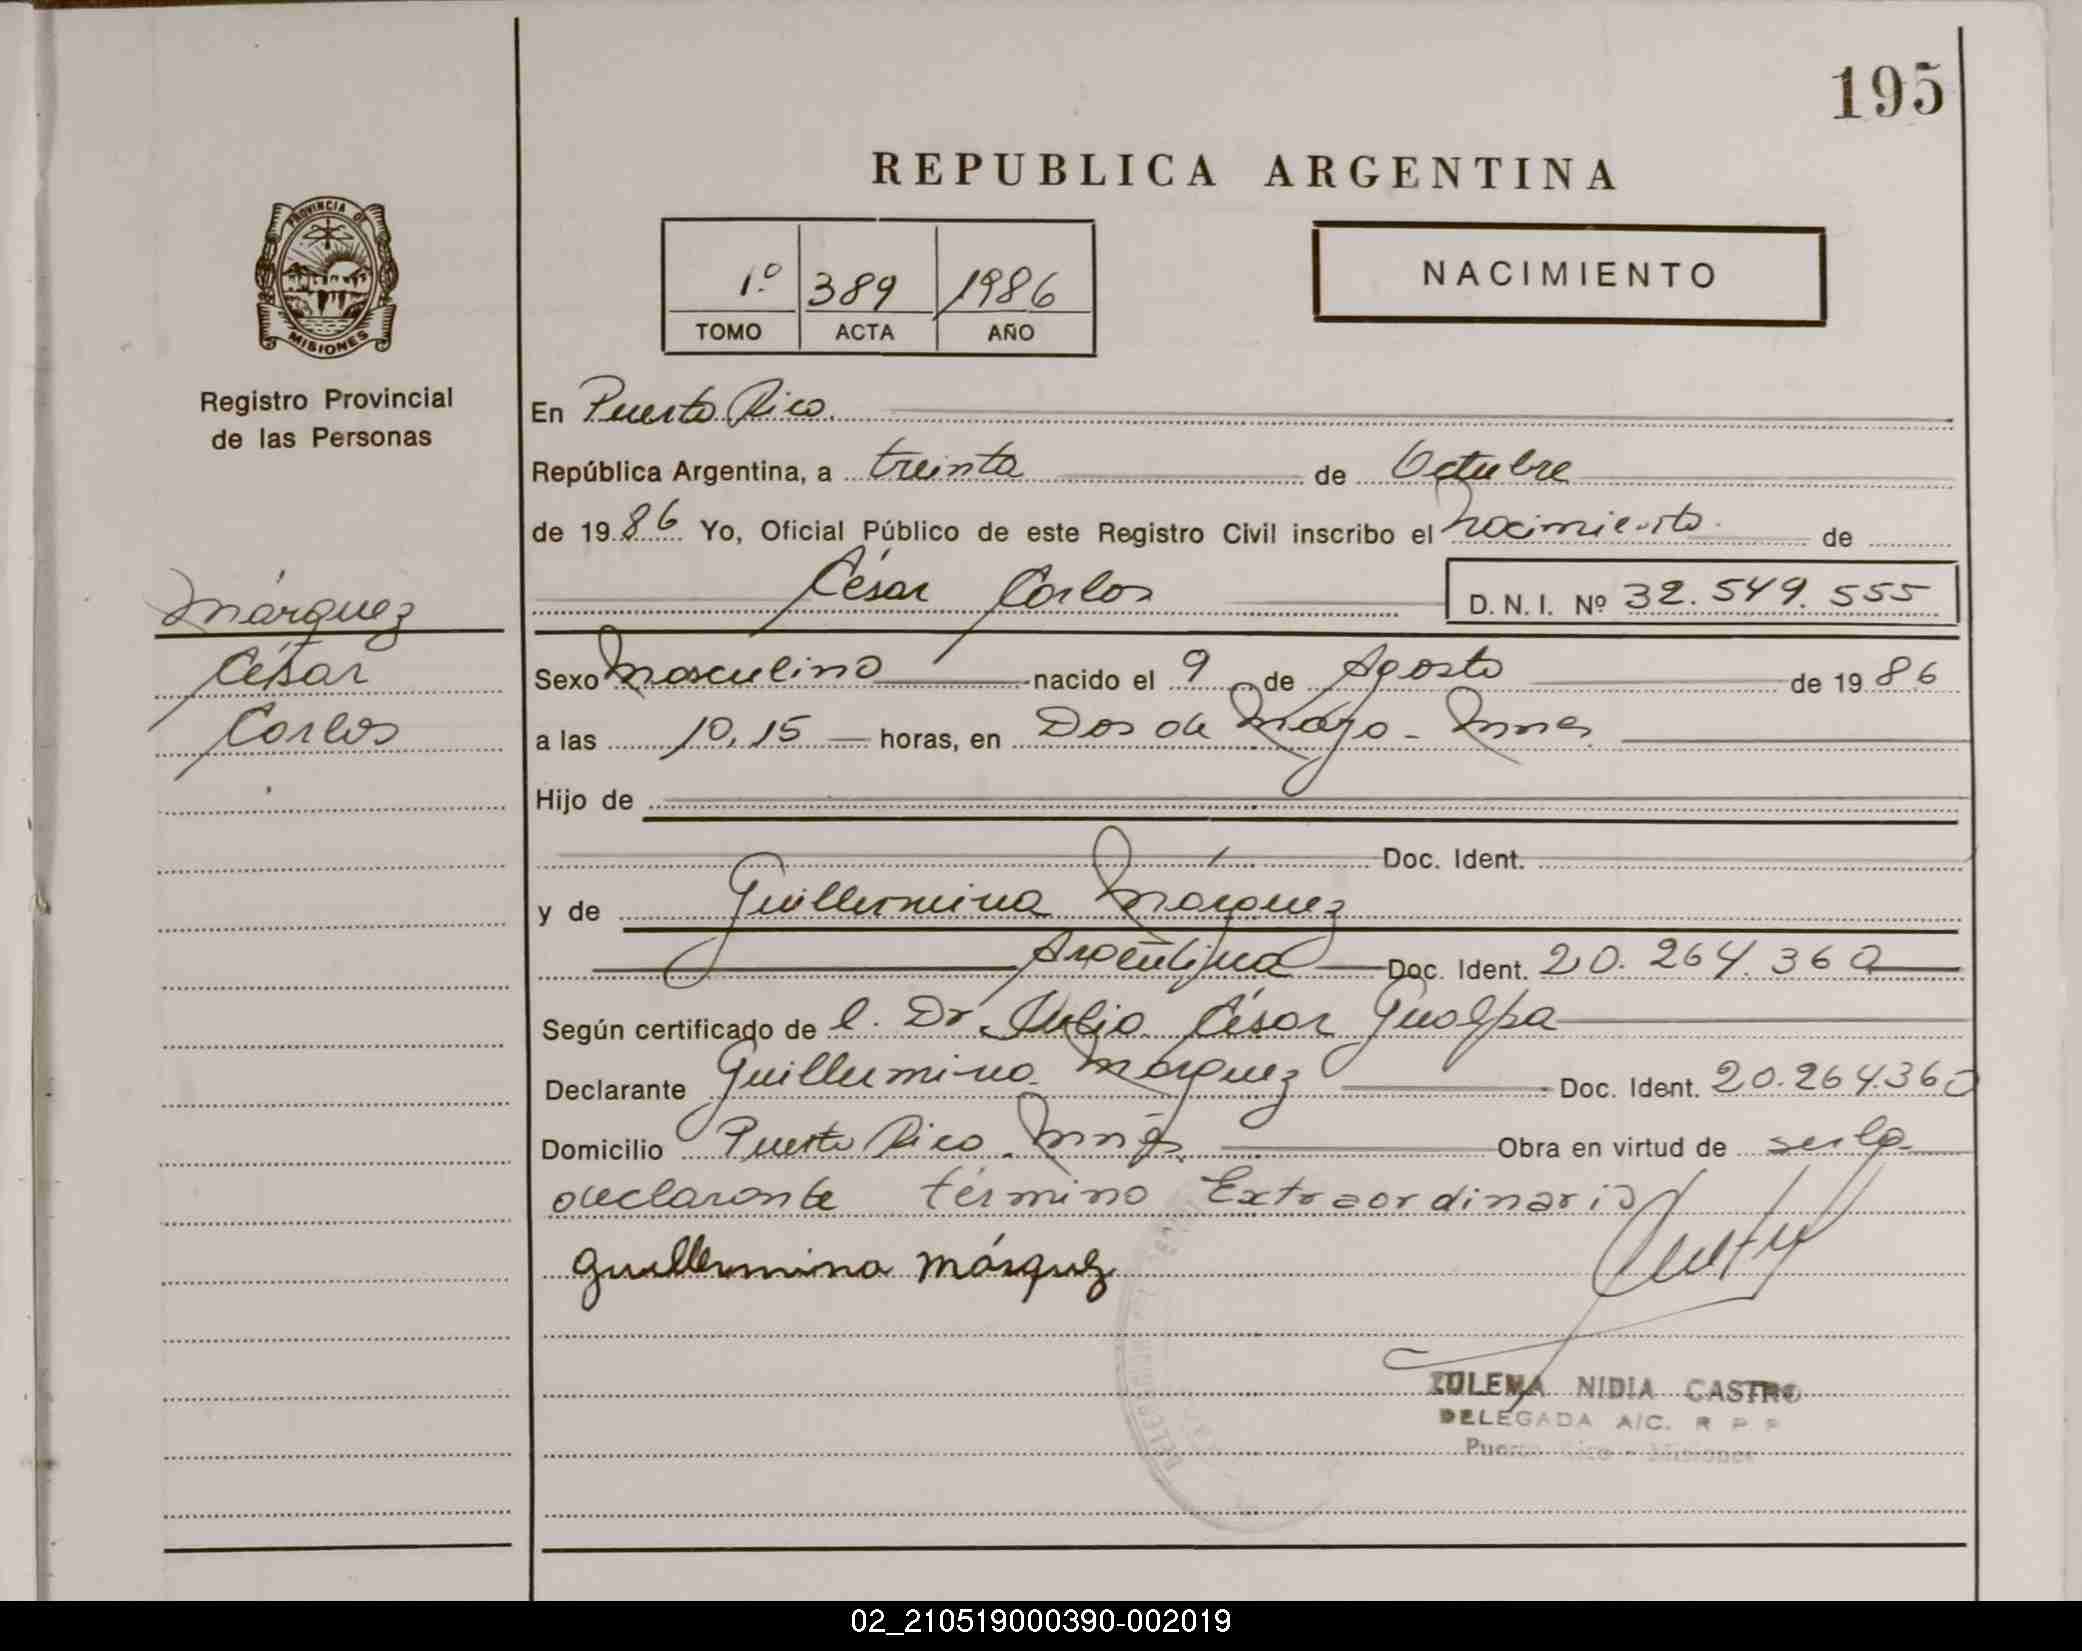 195
REPUBLICA ARGENTINA
PROVINCIA DE
MISIONES
1.º 389 1986
TOMO ACTA AÑO
NACIMIENTO
Registro Provincial
de las Personas
Márquez
César
Carlos
En Puerto Rico.
República Argentina, a treinta de Octubre
de 1986 Yo, Oficial Público de este Registro Civil inscribo el nacimiento de
César Carlos D.N.I. Nº 32.549.555
Sexo Masculino nacido el 9 de Agosto de 1986
a las 10,15 horas, en Dos de Mayo - Mnes.
Hijo de
Doc. Ident.
y de Guillermina Márquez
Argentina Doc. Ident. 20.264.360
Según certificado de l. Dr. Julio César Gualpa
Declarante Guillermina Márquez Doc. Ident. 20.264.360
Domicilio Puerto Rico. Mnes. Obra en virtud de ser la
declarante término Extraordinario
Guillermina Márquez
ZULEMA NIDIA CASTRO
DELEGADA A/C. R P P
Puerto Rico - Misiones
02_210519000390-002019